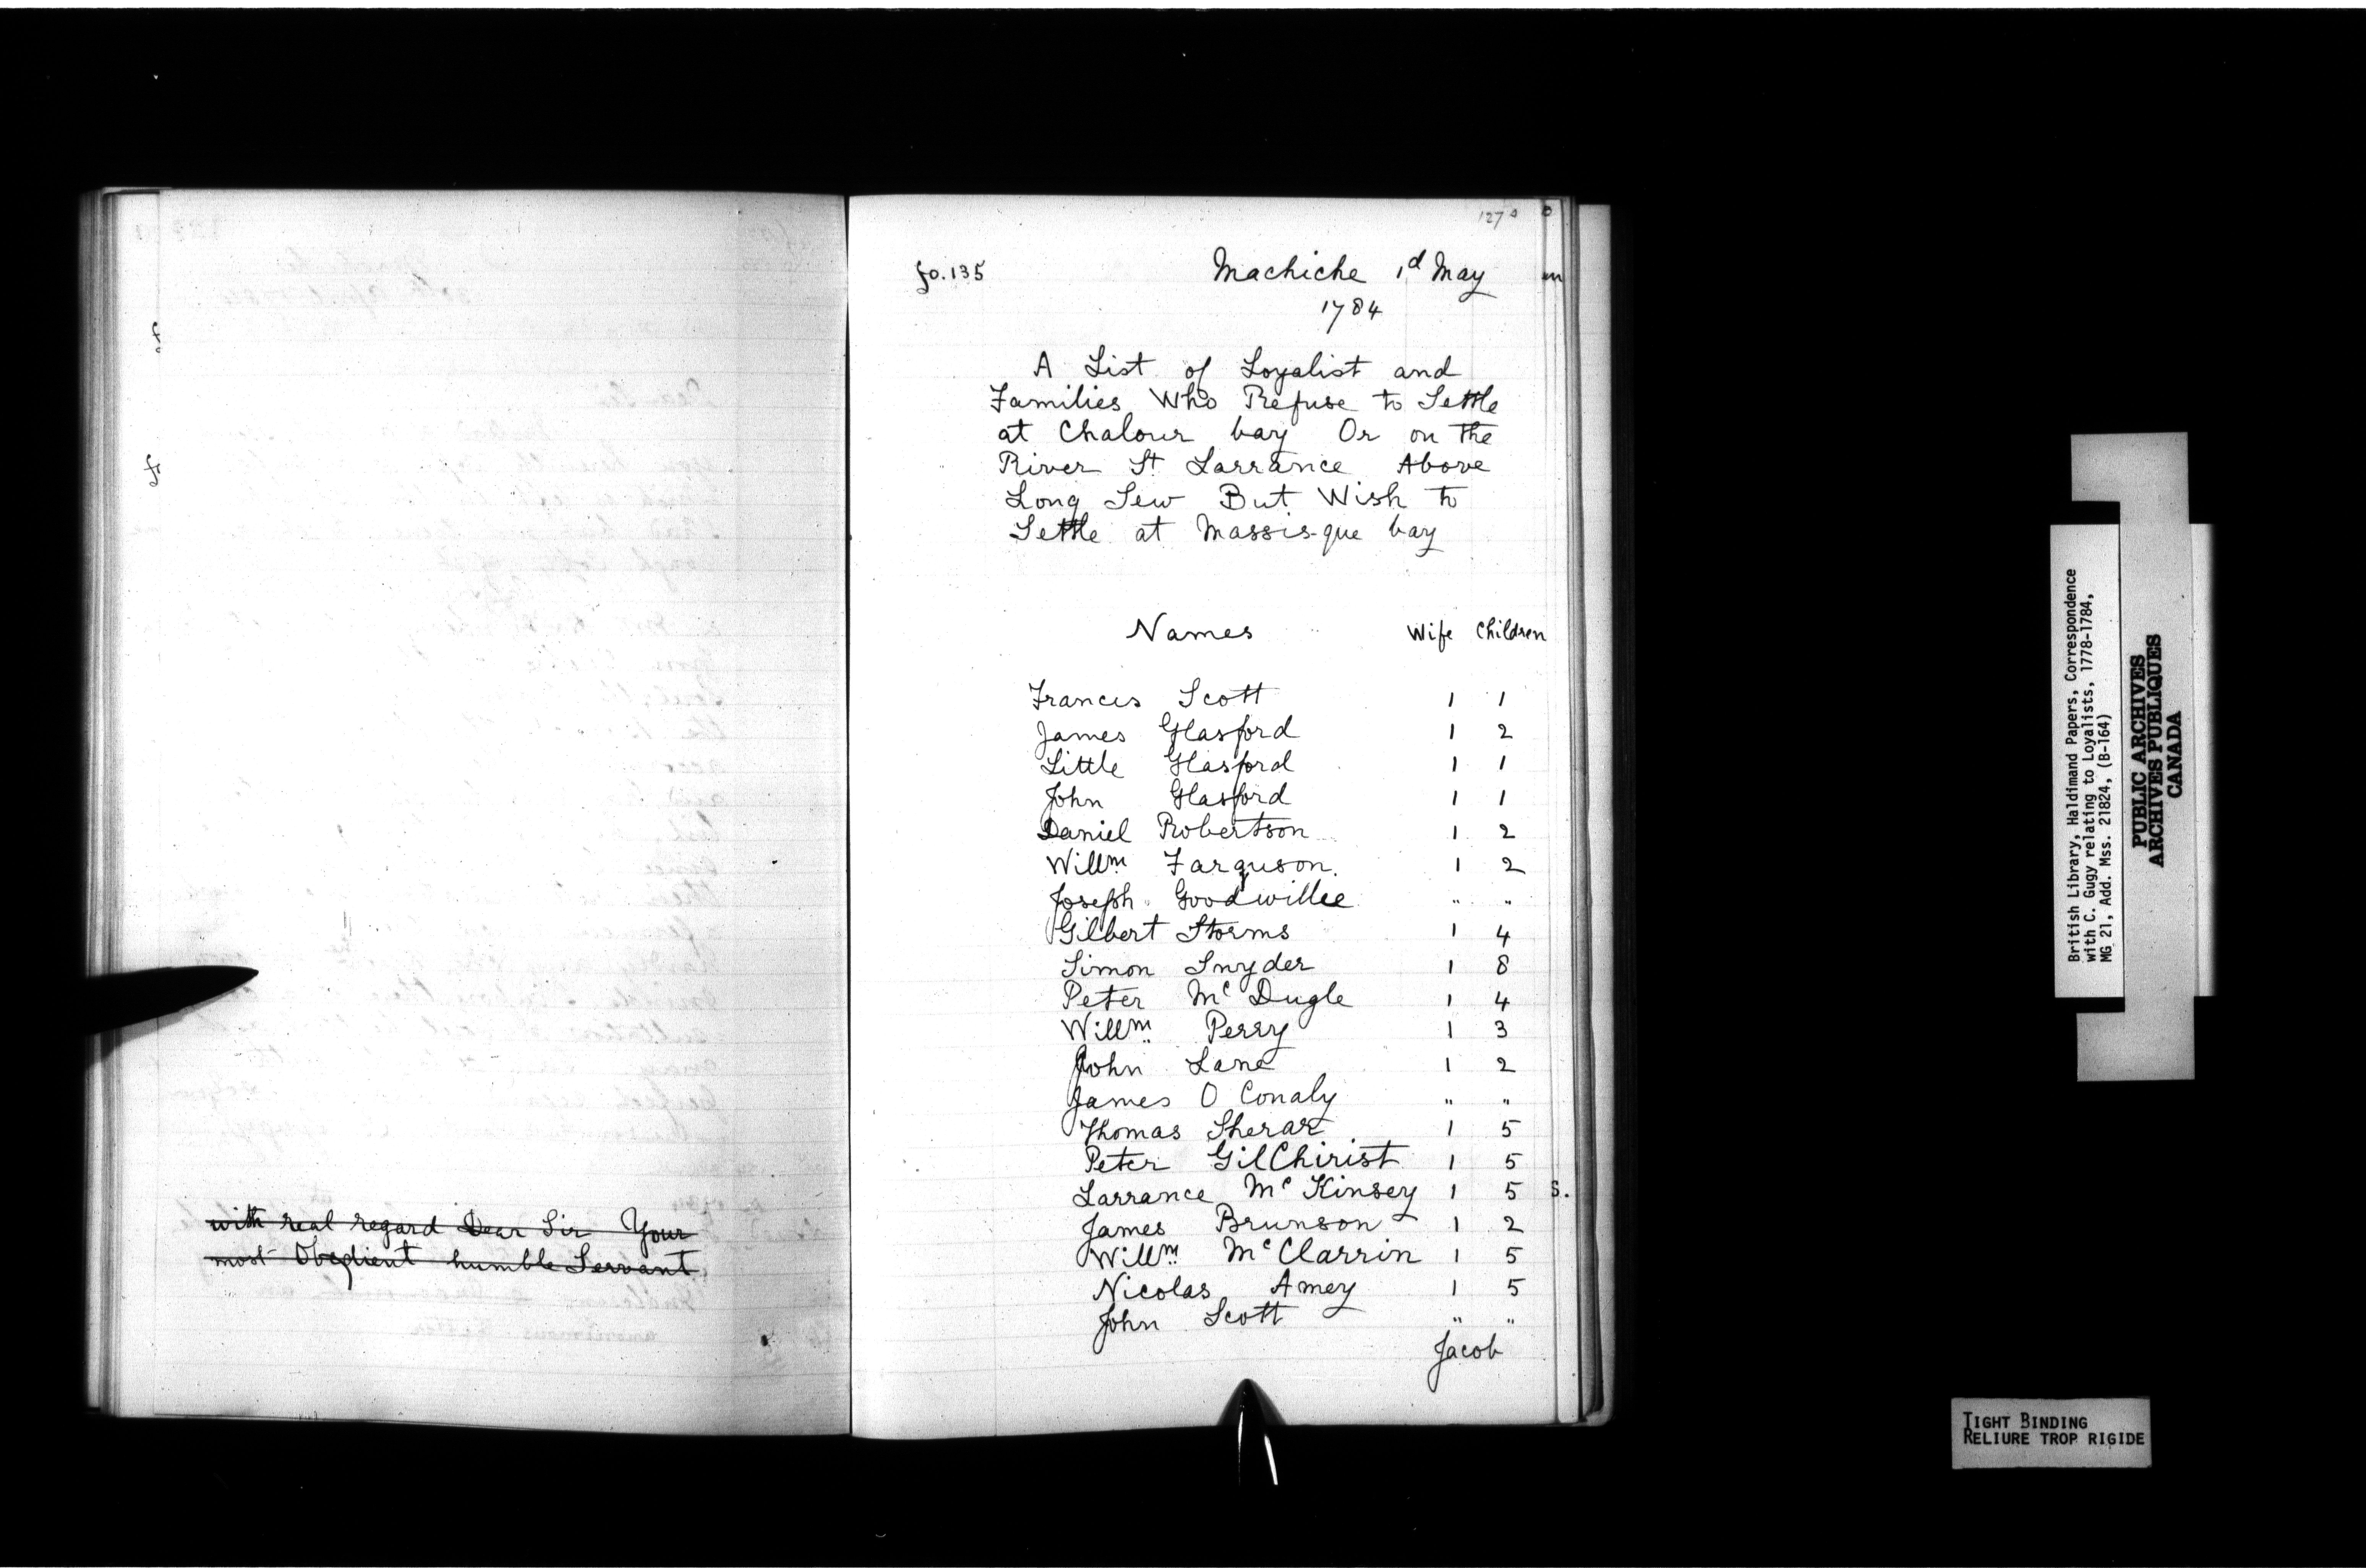 with real regard Dear Sir Your
most Obedient humble Servant
127 a
fo. 135
Machiche 1d May
1784
A List of Loyalist and
Families Who Refuse to Settle
at Chalour bay Or on the
River St Larrance Above
Long Sew But Wish to
Settle at Massis-que bay
Names Wife Children
Frances Scott 1 1
James Glasford 1 2
Little Glasford 1 1
John Glasford 1 1
Daniel Robertson 1 2
Willm Farguson 1 2
Joseph Goodwillee " "
Gilbert Storms 1 4
Simon Snyder 1 8
Peter Mc Dugle 1 4
Willm Perry 1 3
John Lane 1 2
James O Conaly " "
Thomas Sherar 1 5
Peter GilChirist 1 5
Larrance Mc Kinsey 1 5
James Brunson 1 2
Willm McClarrin 1 5
Nicolas Amey 1 5
John Scott " "
Jacob
British Library, Haldimand Papers, Correspondence
with C. Gugy relating to Loyalists, 1778-1784,
MG 21, Add. Mss. 21824, (B-164)
PUBLIC ARCHIVES
ARCHIVES PUBLIQUES
CANADA
TIGHT BINDING
RELIURE TROP RIGIDE